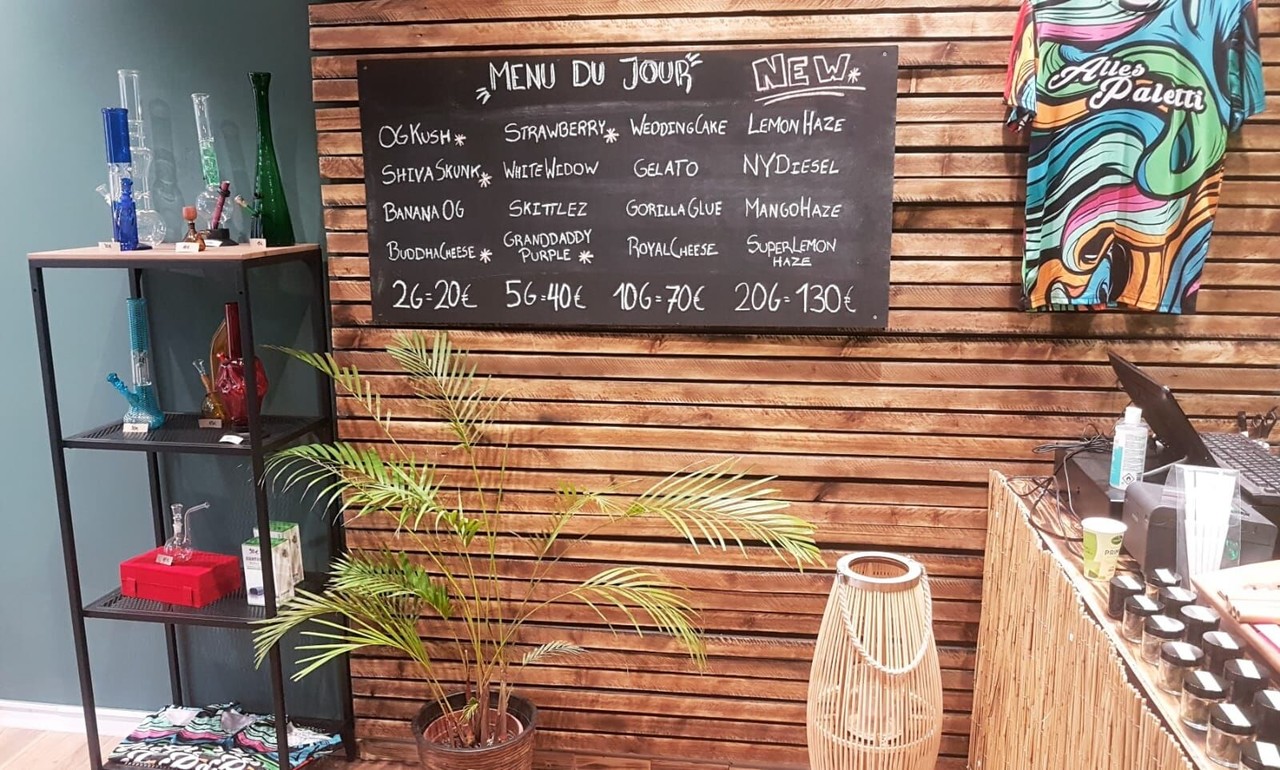 MENU DU JOUR NEW*
OG KUSH* STRAWBERRY* WEDDING CAKE LEMON HAZE
SHIVA SKUNK* WHITE WIDOW GELATO NY DIESEL
BANANA OG SKITTLEZ GORILLA GLUE MANGO HAZE
BUDDHA CHEESE* GRANDDADDY PURPLE* ROYAL CHEESE SUPER LEMON HAZE
2G=20€ 5G=40€ 10G=70€ 20G=130€
Alles
Paletti